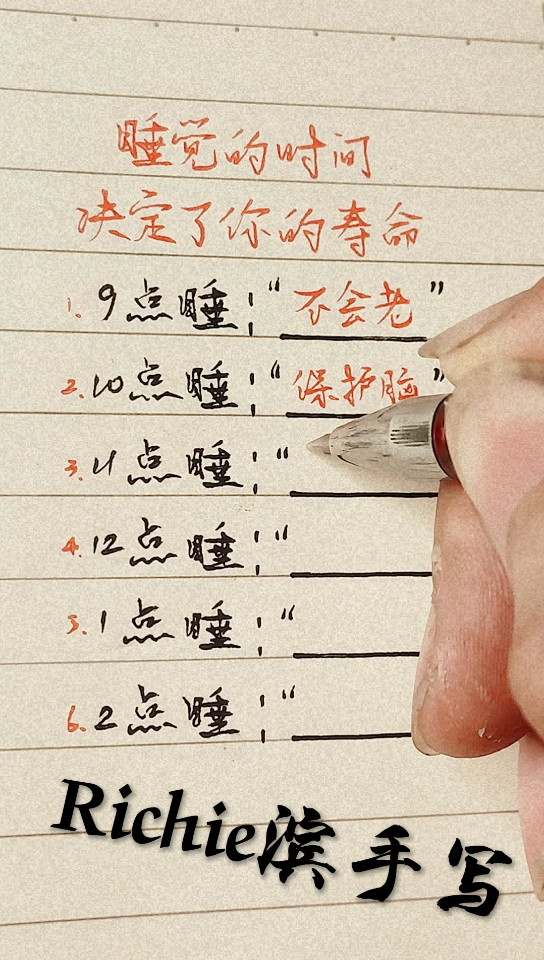 睡觉的时间
决定了你的寿命
1. 9点睡:“不会老”
2. 10点睡:“保护脑”
3. 11点睡:“
4. 12点睡:“
5. 1点睡:“
6. 2点睡:“
Richie滨手写